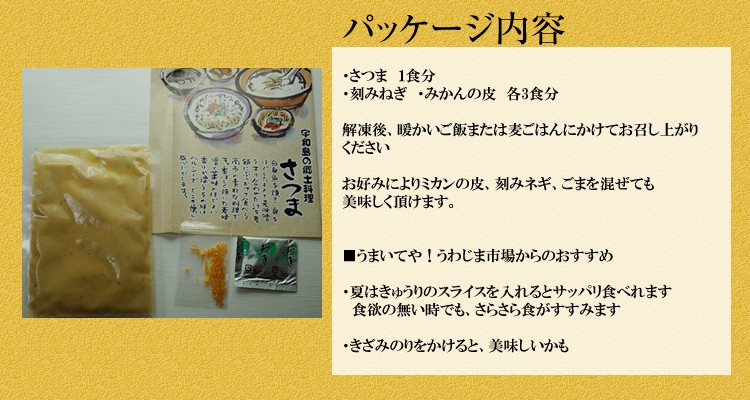 パッケージ内容
・さつま　1食分
・刻みねぎ　・みかんの皮　各3食分
解凍後、暖かいご飯または麦ごはんにかけてお召し上がり
ください
お好みによりミカンの皮、刻みネギ、ごまを混ぜても
美味しく頂けます。
■うまいてや！うわじま市場からのおすすめ
・夏はきゅうりのスライスを入れるとサッパリ食べれます
食欲の無い時でも、さらさら食がすすみます
・きざみのりをかけると、美味しいかも
宇和島の郷土料理
さつま